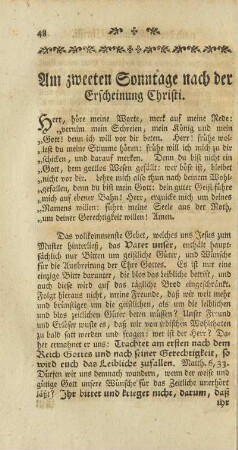 48
Am zweeten Sonntage nach der
Erscheinung Christi.
Herr, höre meine Worte, merk auf meine Rede:
„vernim mein Schreien, mein König und mein
„Gott! denn ich will vor dir beten. Herr! frühe wol-
„lest du meine Stimme hören: frühe will ich mich zu dir
„schicken, und darauf merken. Denn du bist nicht ein
„Gott, dem gottlos Wesen gefällt: wer böse ist, bleibt
„nicht vor dir. lehre mich also thun nach deinem Wohl-
„gefallen, denn du bist mein Gott: dein guter Geist führe
„mich auf ebener Bahn! Herr, erquicke mich um deines
„Namens willen: führe meine Seele aus der Noth,
„um deiner Gerechtigkeit willen! Amen.
Das vollkommenste Gebet, welches uns Jesus zum
Muster hinterließ, das Vater unser, enthält haupt-
sächlich nur Bitten um geistliche Güter, und Wünsche
für die Ausbreitung der Ehre Gottes. Es ist nur eine
einzige Bitte darunter, die blos das leibliche betrift, und
auch diese wird auf das tägliche Brod eingeschränkt.
Folgt hieraus nicht, meine Freunde, daß wir weit mehr
und brünstiger um die geistlichen, als um die leiblichen
und blos zeitlichen Güter beten müssen? Unser Freund
und Erlöser wuste es, daß wir von jrdischen Wohlthaten
zu bald satt werden und fragen: wer ist der Herr? Da-
her ermahnet er uns: Trachtet am ersten nach dem
Reich Gottes und nach seiner Gerechtigkeit, so
wird euch das Leibliche zufallen. Matth. 6, 33.
Dürfen wir uns demnach wundern, wenn der weise und
gütige Gott unsere Wünsche für das Zeitliche unerhört
läßt? Ihr bittet und krieget nicht, darum, daß
ihr